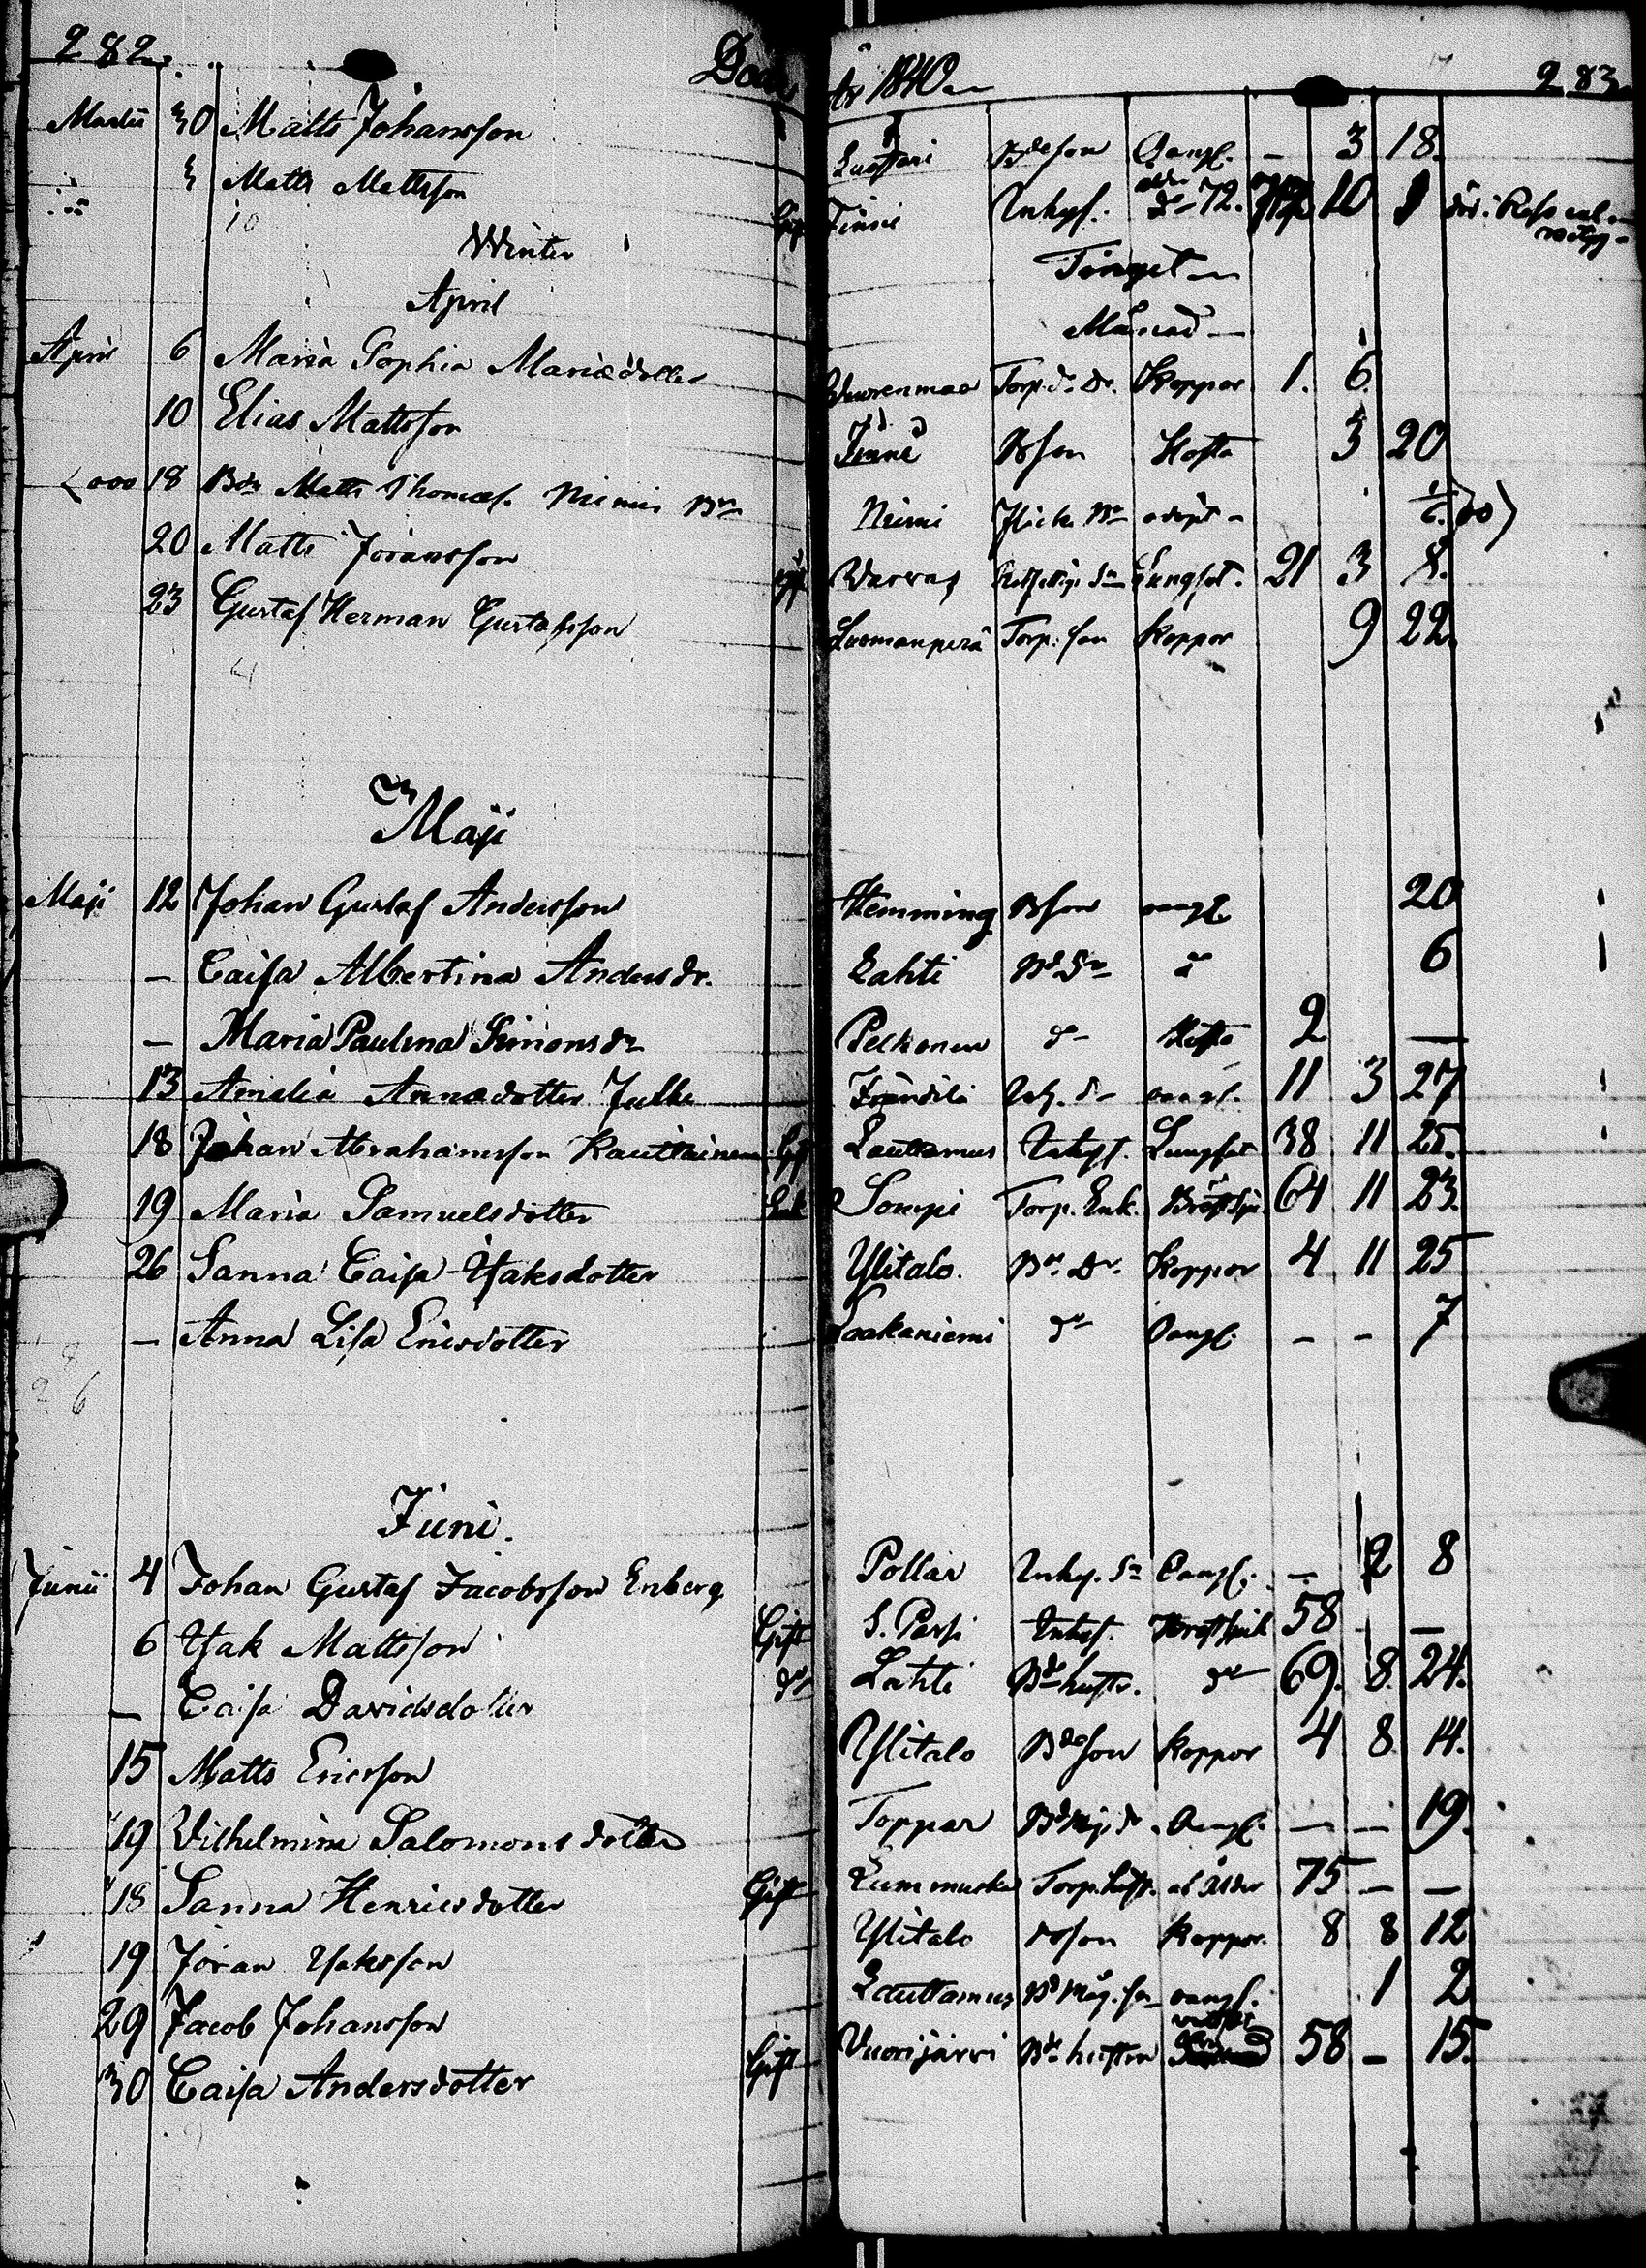 282.
Döde
År 1840
283
Martii 30 Matts Johansson Luopari Bdeson Oangl. - 3 18.
3 Matts Mattsson Gift Finni Inhys. 10
10
Winter Tinget
April Månad
April 6 Maria Sophia Mariædotter Torp. dr. Dr. Koppor 1. 6.
10 Elias Mattsson Bson Hosta 3 20
18 Bdn Matts Thomas. Niemis Bn Niemi
20 Matts Joransson Warras Lungsot. 21 3 8.
23 Gustaf Herman Gustafsson Luomanperä Torp. son Koppor 9 22.
4
Maji
Maji 12 Johan Gustaf Andersson Hemming Bson oangl. 20
- Caisa Albertina Anders dr. Lahti 6
- Maria Paulina Simons dr Pelkonen dr Hosta 2 -
13 Amalia Annædotter Julke Inh. dr oangl. 11 3 27
18 Johan Abrahamsson Rautiainen Gift Lauttamus Inhys. Lungsot 38 11 25.
19 Maria Samuelsdotter Enk Sompi Torp. Enk. Bröstsju. 64 11 23.
26 Sanna Caisa Isaksdotter Ylitalo. Bn. Dr. Koppor 4 11 25
- Anna Lisa Ericsdotter Laakaniemi dr Oangl. - - 7
6
Juni.
Junii 4 Johan Gustaf Jacobsson Enberg Pollar Inhy. Sn Oangl. - 2 8
6 Isak Mattsson Gift S. Passi Inhys. 58 - -
- Caisa Davidsdotter do Lahti Bdehustr. do 69. 8. 24.
15 Matts Ericsson Ylitalo Bdeson Koppor 4 8 14.
19 Vilhelmina Salomons dotter Toppar Bd Måg. dr. Oangl. - - 19.
18 Sanna Henricsdotter Gift Lummuka Torp. hustr. af Ålder 75 - -
19 Jöran Isaksson Ylitalo Bson Koppor. 8 8 12
29 Jacob Johansson Lauttamus Bd Måg. son oangl. 1 2
30 Caisa Andersdotter Gift Vuorijärvi Bde hustru 58 - 15.